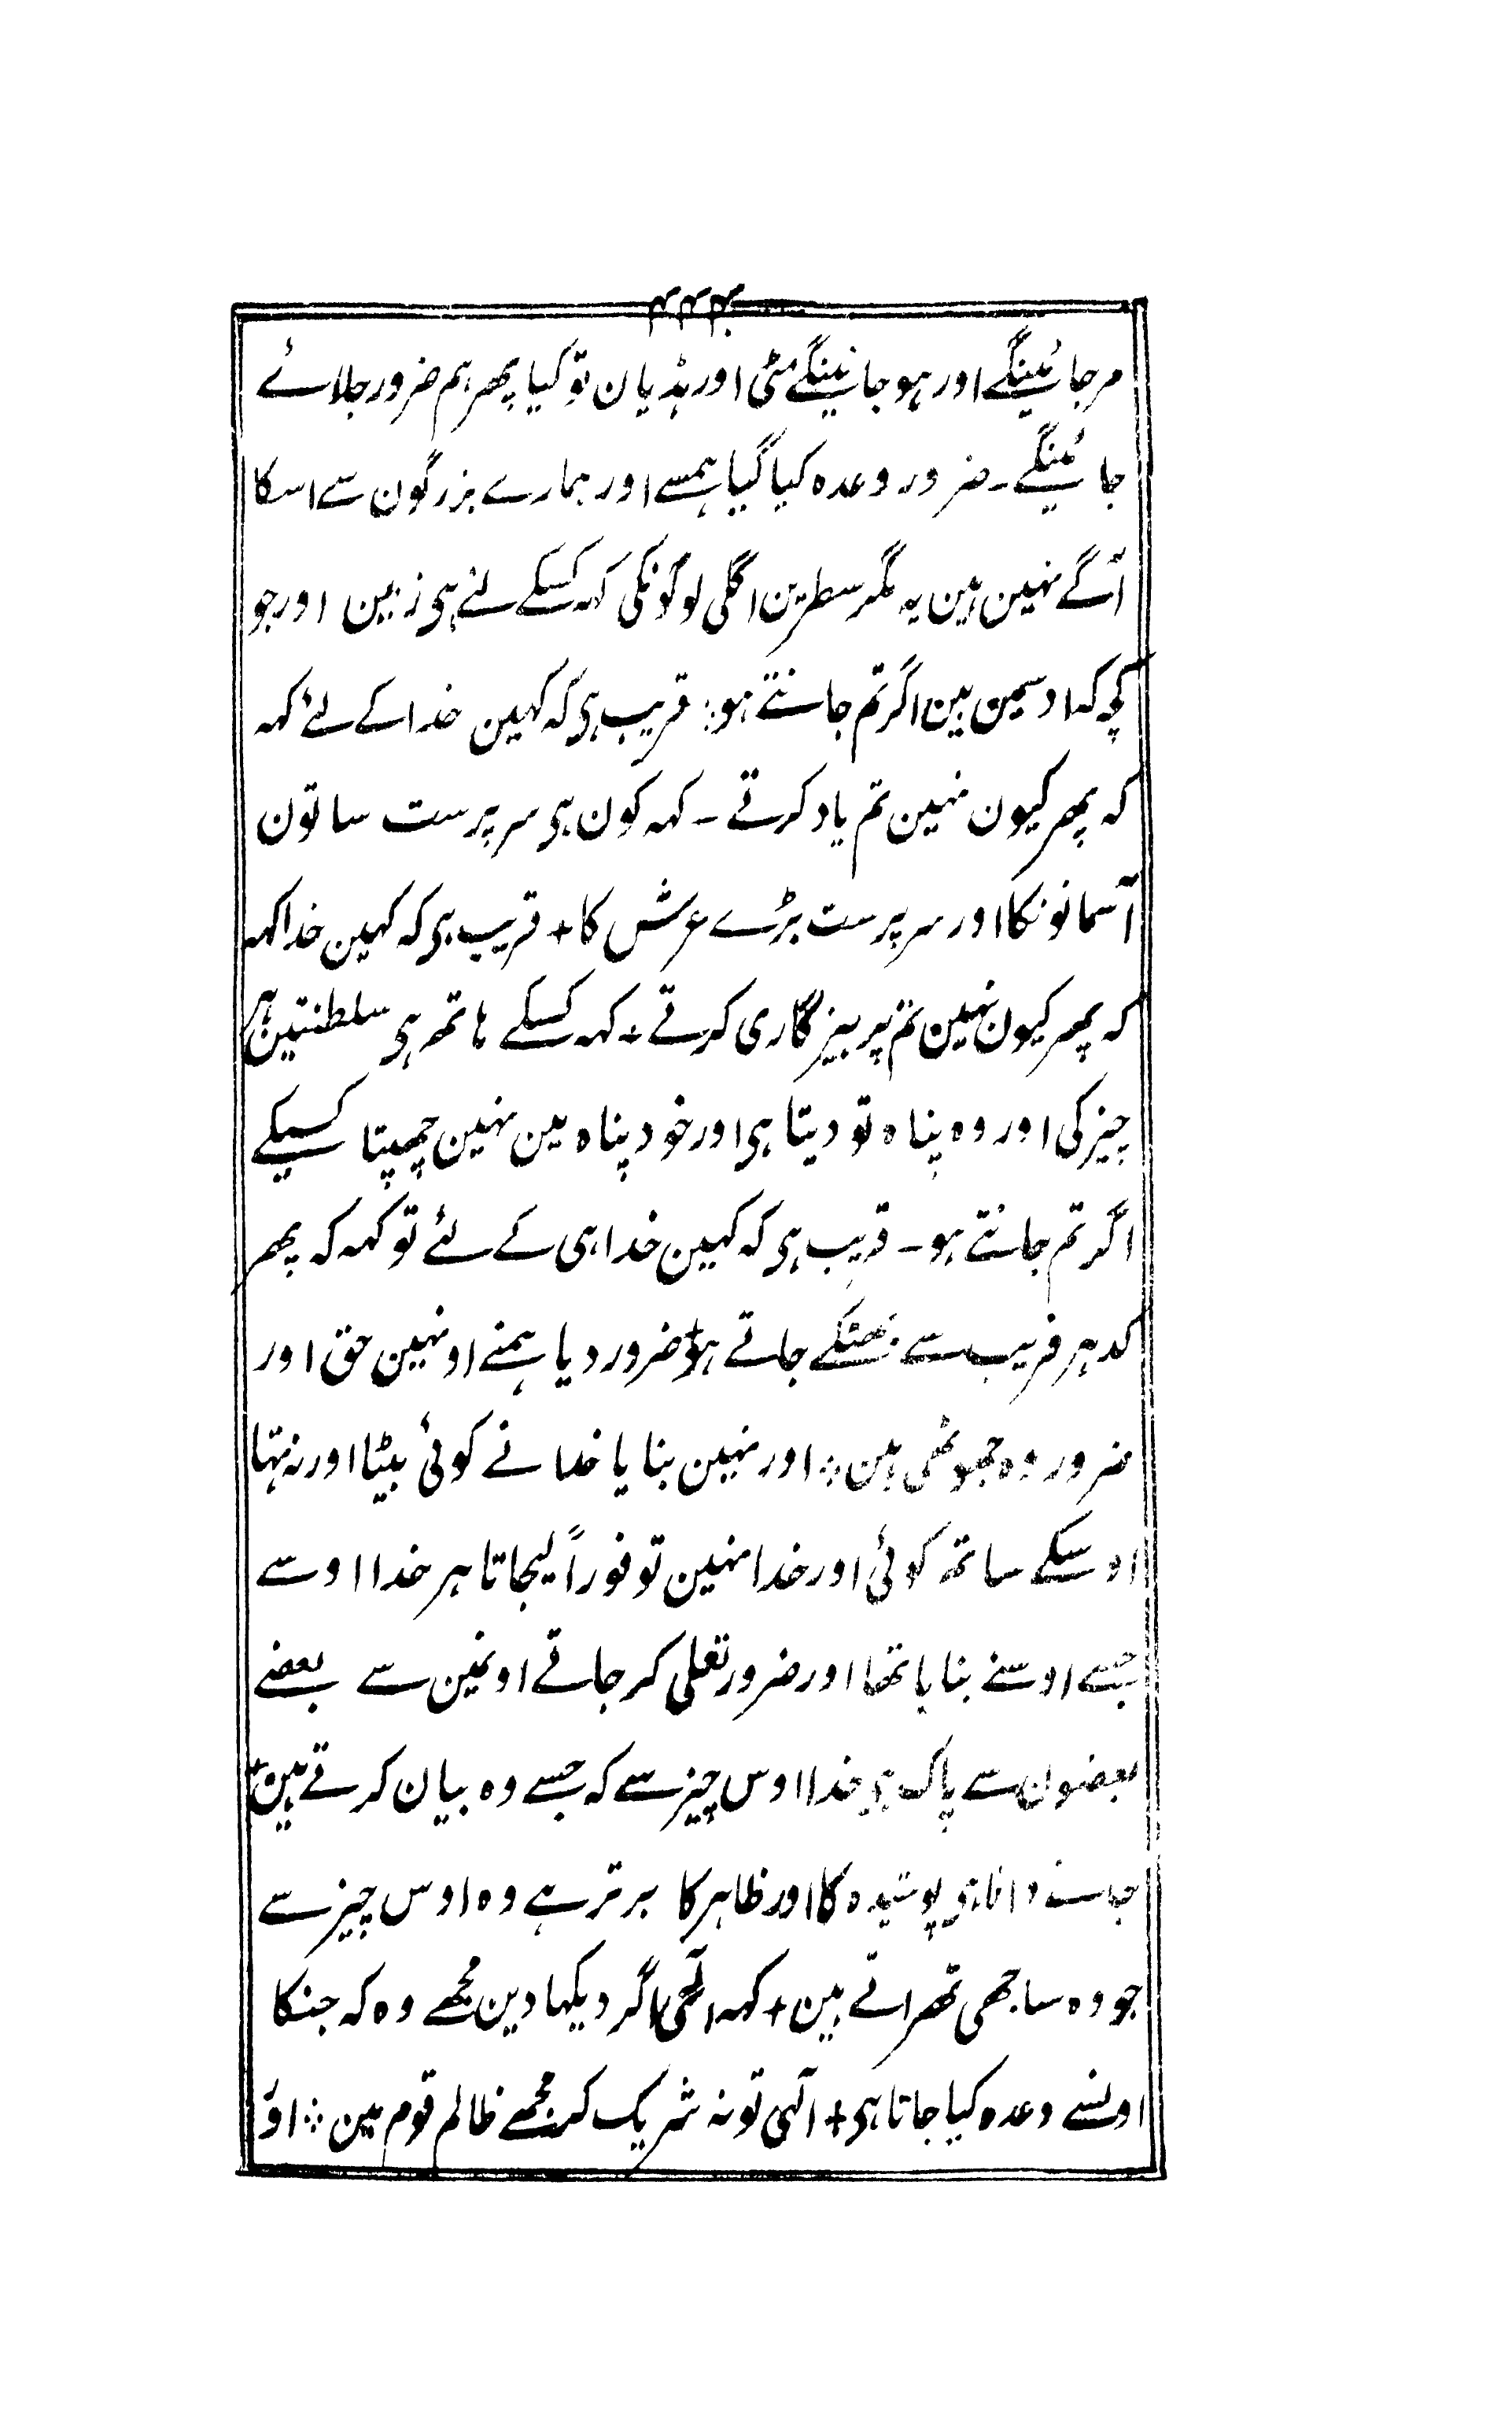 ۴۴۴
مر جائینگے اور ہو جائینگے مٹی اور ہڈیان تو کیا پھر ہم ضرور جلائے
جائینگے ۔ ضرور وعدہ کیا گیا ہمسے اور ہمارے بزرگون سے اسکا
آگے نہین ہین یہ مگر سطرین اگلی لوگونکی کہہ کسکے لئے ہی زمین اور جو
کچہ کہ اوسمین ہین اگر تم جانتے ہو ؞ قریب ہی کہ کہین خدا کے لئے کہہ
کہ پھر کیون نہین تم یاد کرتے ۔ کہہ کون ہی سرپرست ساتون
آسمانونکا اور سرپرست بڑے عرش کا + قریب ہی کہ کہین خدا کہہ
کہ پھر کیون نہین تم پرہیزگاری کرتے + کہہ کسکے ہاتھ ہی سلطنتین ہر
چیز کی اور وہ پناہ تو دیتا ہی اور خود پناہ مین نہین چھپتا کسیکے
اگر تم جانتے ہو ۔ قریب ہی کہ کہین خدا ہی کے لئے تو کہہ کہ پھر
کدہر فریب سے بھٹکے جاتے ہو + ضرور دیا ہمنے اونہین حق اور
ضرور وہ جھوٹھی ہین ؞ اور نہین بنایا خدا نے کوئی بیٹا اور نہ تہا
اوسکے ساتھ کوئی اور خدا نہین تو فوراً لیجاتا ہر خدا اوسے
جسے اوسنے بنایا تھا اور ضرور تعلی کر جاتے اونمین سے بعضے
بعضون سے پاک ہی خدا اوس چیز سے کہ جسے وہ بیان کرتے ہین +
دانا ہی پوشیدہ کا اور ظاہر کا برتر ہے وہ اوس چیز سے
جو وہ ساجھی تھراتے ہین + کہہ الٓہی اگر دیکہا دین مجھے وہ کہ جنکا
اونسے وعدہ کیا جاتا ہی + الٓہی تو نہ شریک کر مجھے ظالم قوم مین ؞ اور